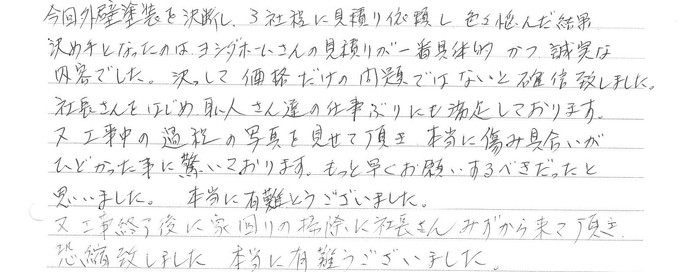 今回外壁塗装を決断し、3社程に見積り依頼し 色々悩んだ結果
決め手となったのは、ヨシダホームさんの見積りが一番具体的 かつ 誠実な
内容でした。決っして 価格だけの問題ではないと確信致しました。
社長さんをはじめ 職人さん達の仕事ぶりにも満足しております。
又 工事中の過程の写真を見せて頂き 本当に傷み具合いが
ひどかった事に驚いております。もっと早くお願いするべきだったと
思いいました。 本当に有難とうございました。
又 工事終了後に家回りの掃除に社長さんみずから来て頂き
恐縮致しました 本当に有難うございました。